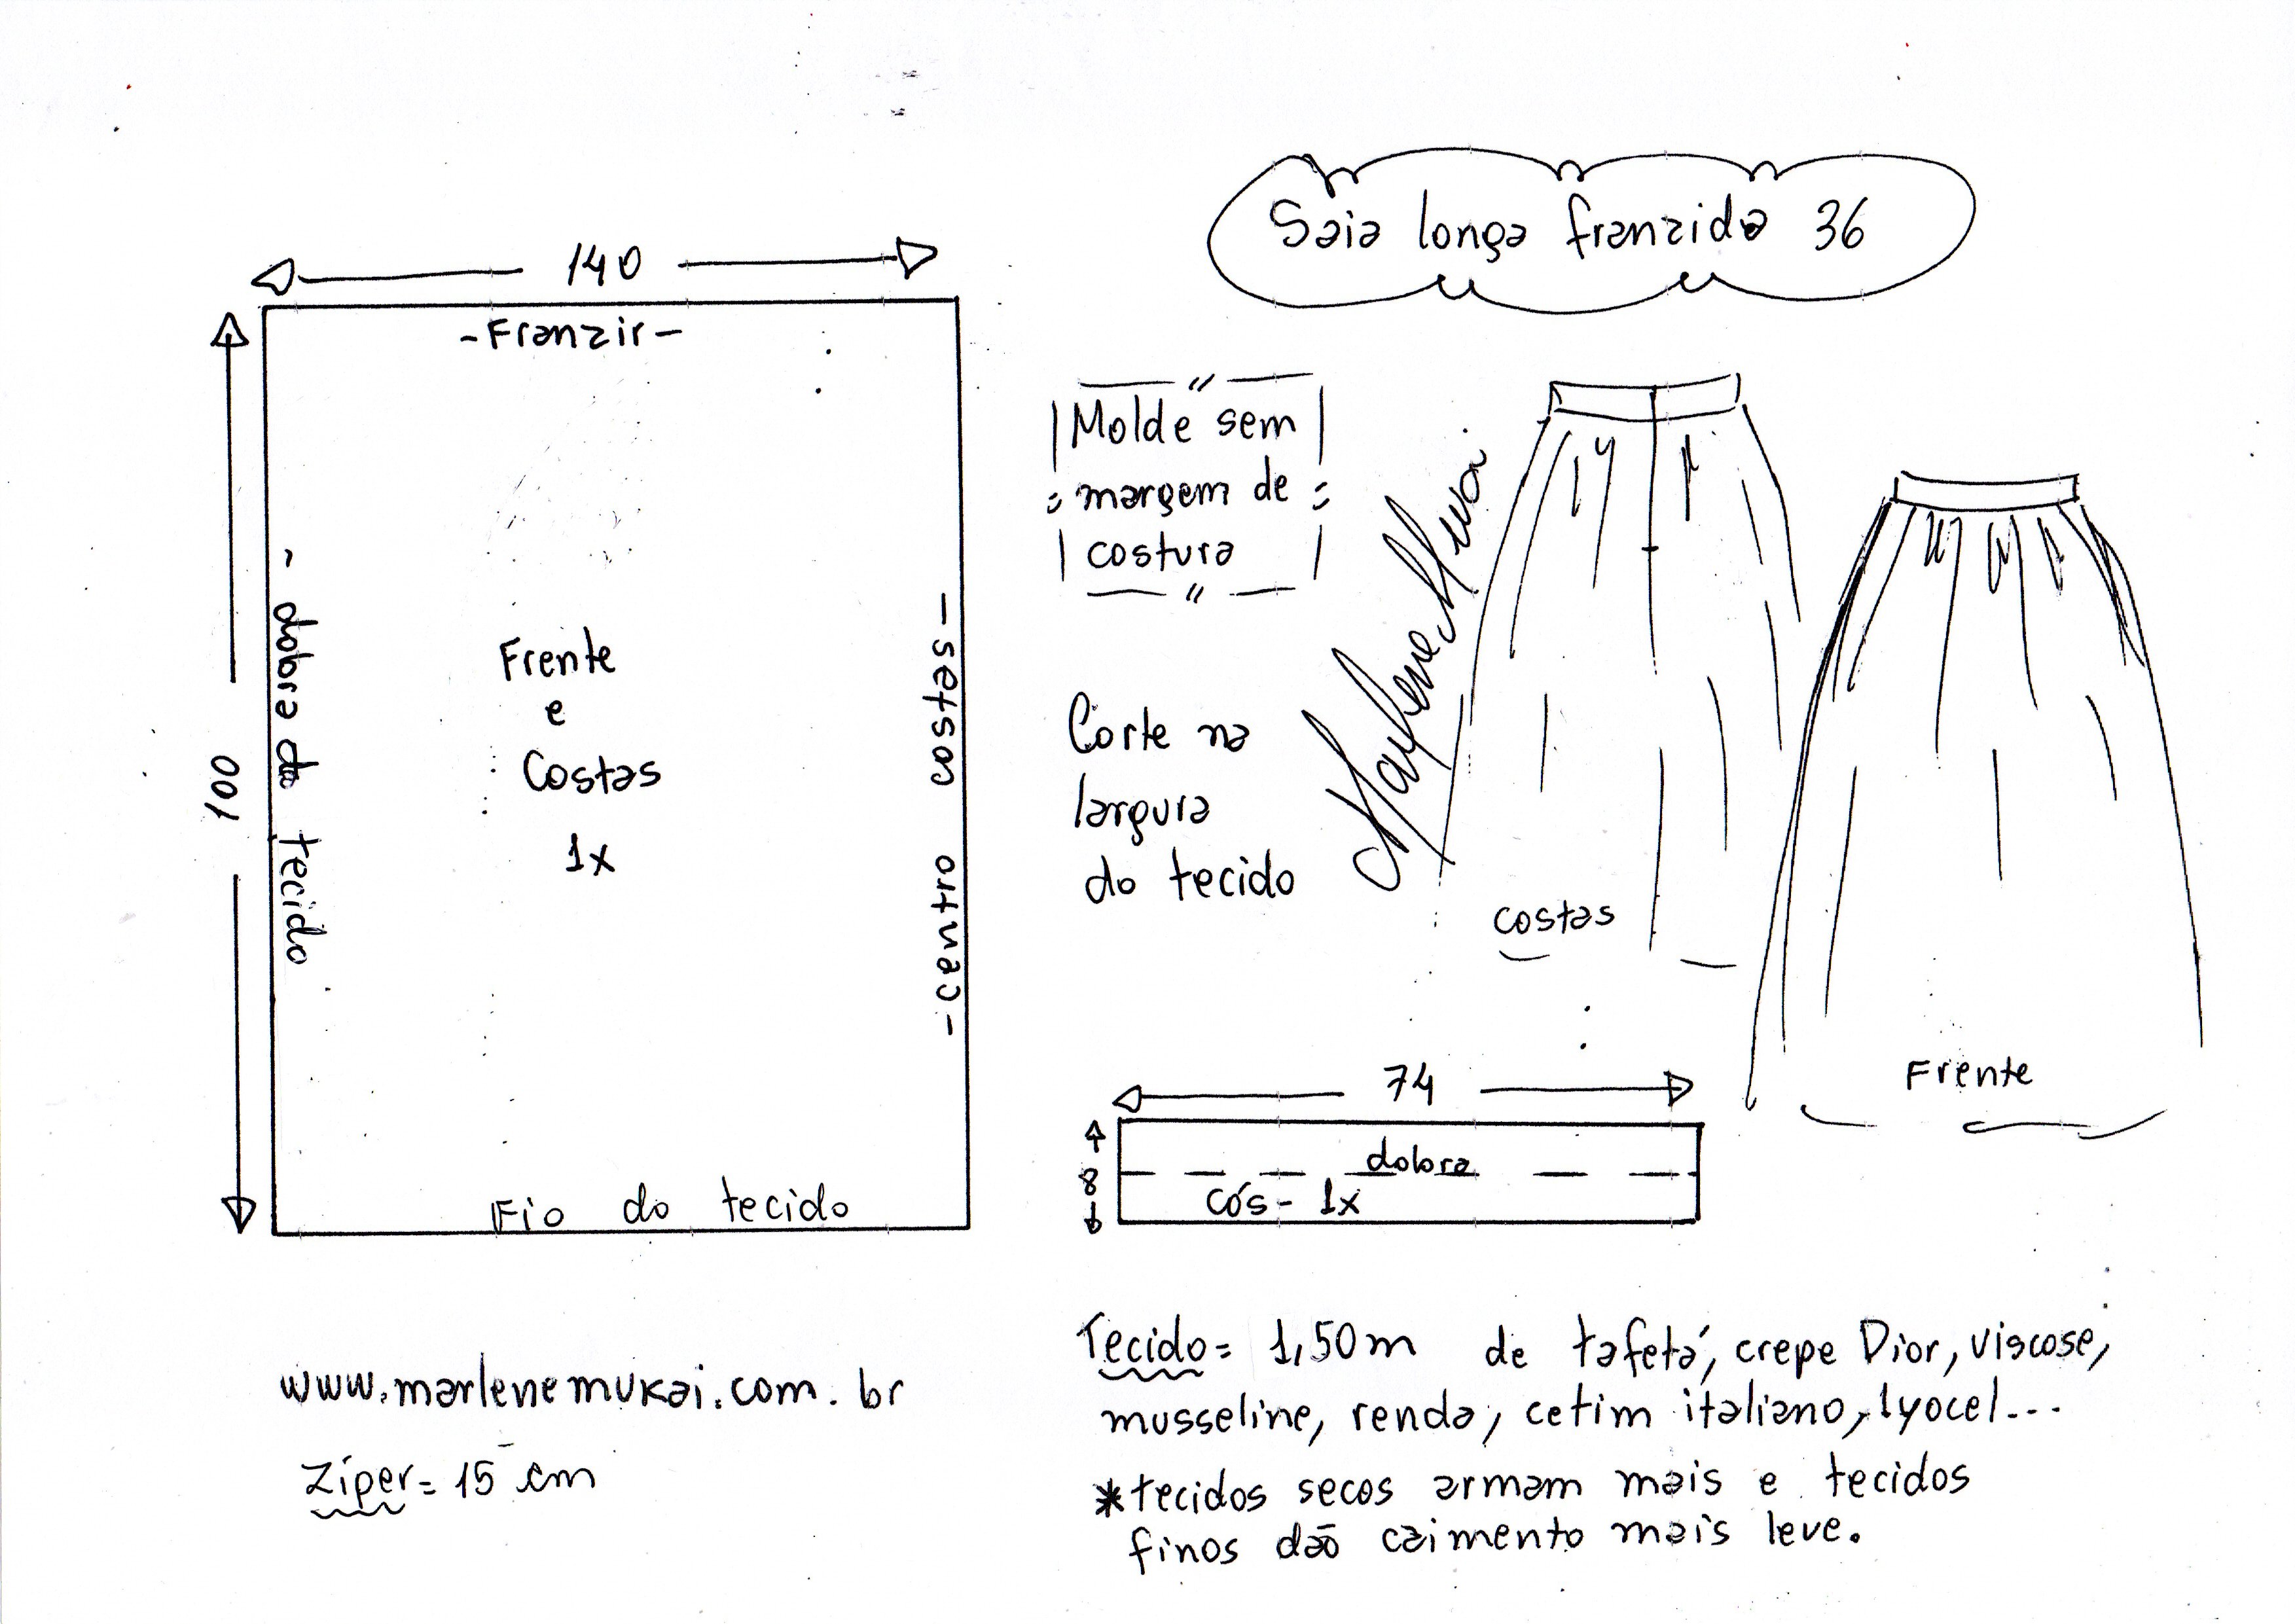 Saia longa franzida 36
140
-Franzir-
100
- dobra do tecido
Frente
e
Costas
1x
- centro costas -
Fio do tecido
Molde sem
margem de
costura
Corte na
largura
do tecido
Marlene Mukai
costas
Frente
74
8
dobra
cós - 1x
www.marlenemukai.com.br
Zíper = 15 cm
Tecido = 1,50m de tafetá, crepe Dior, viscose,
musseline, renda, cetim italiano, lyocel...
*tecidos secos armam mais e tecidos
finos dão caimento mais leve.